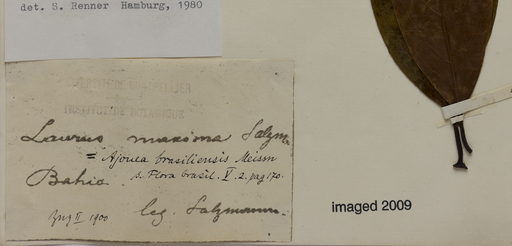 det. S. Renner Hamburg, 1980
INSTITUT DE BOTANIQUE
Laurus maxima Salzm.
= Ajouea brasiliensis Meisn
s. Flora brasil. V. 2. pag 170.
Bahia.
leg. Salzmann.
1900
imaged 2009